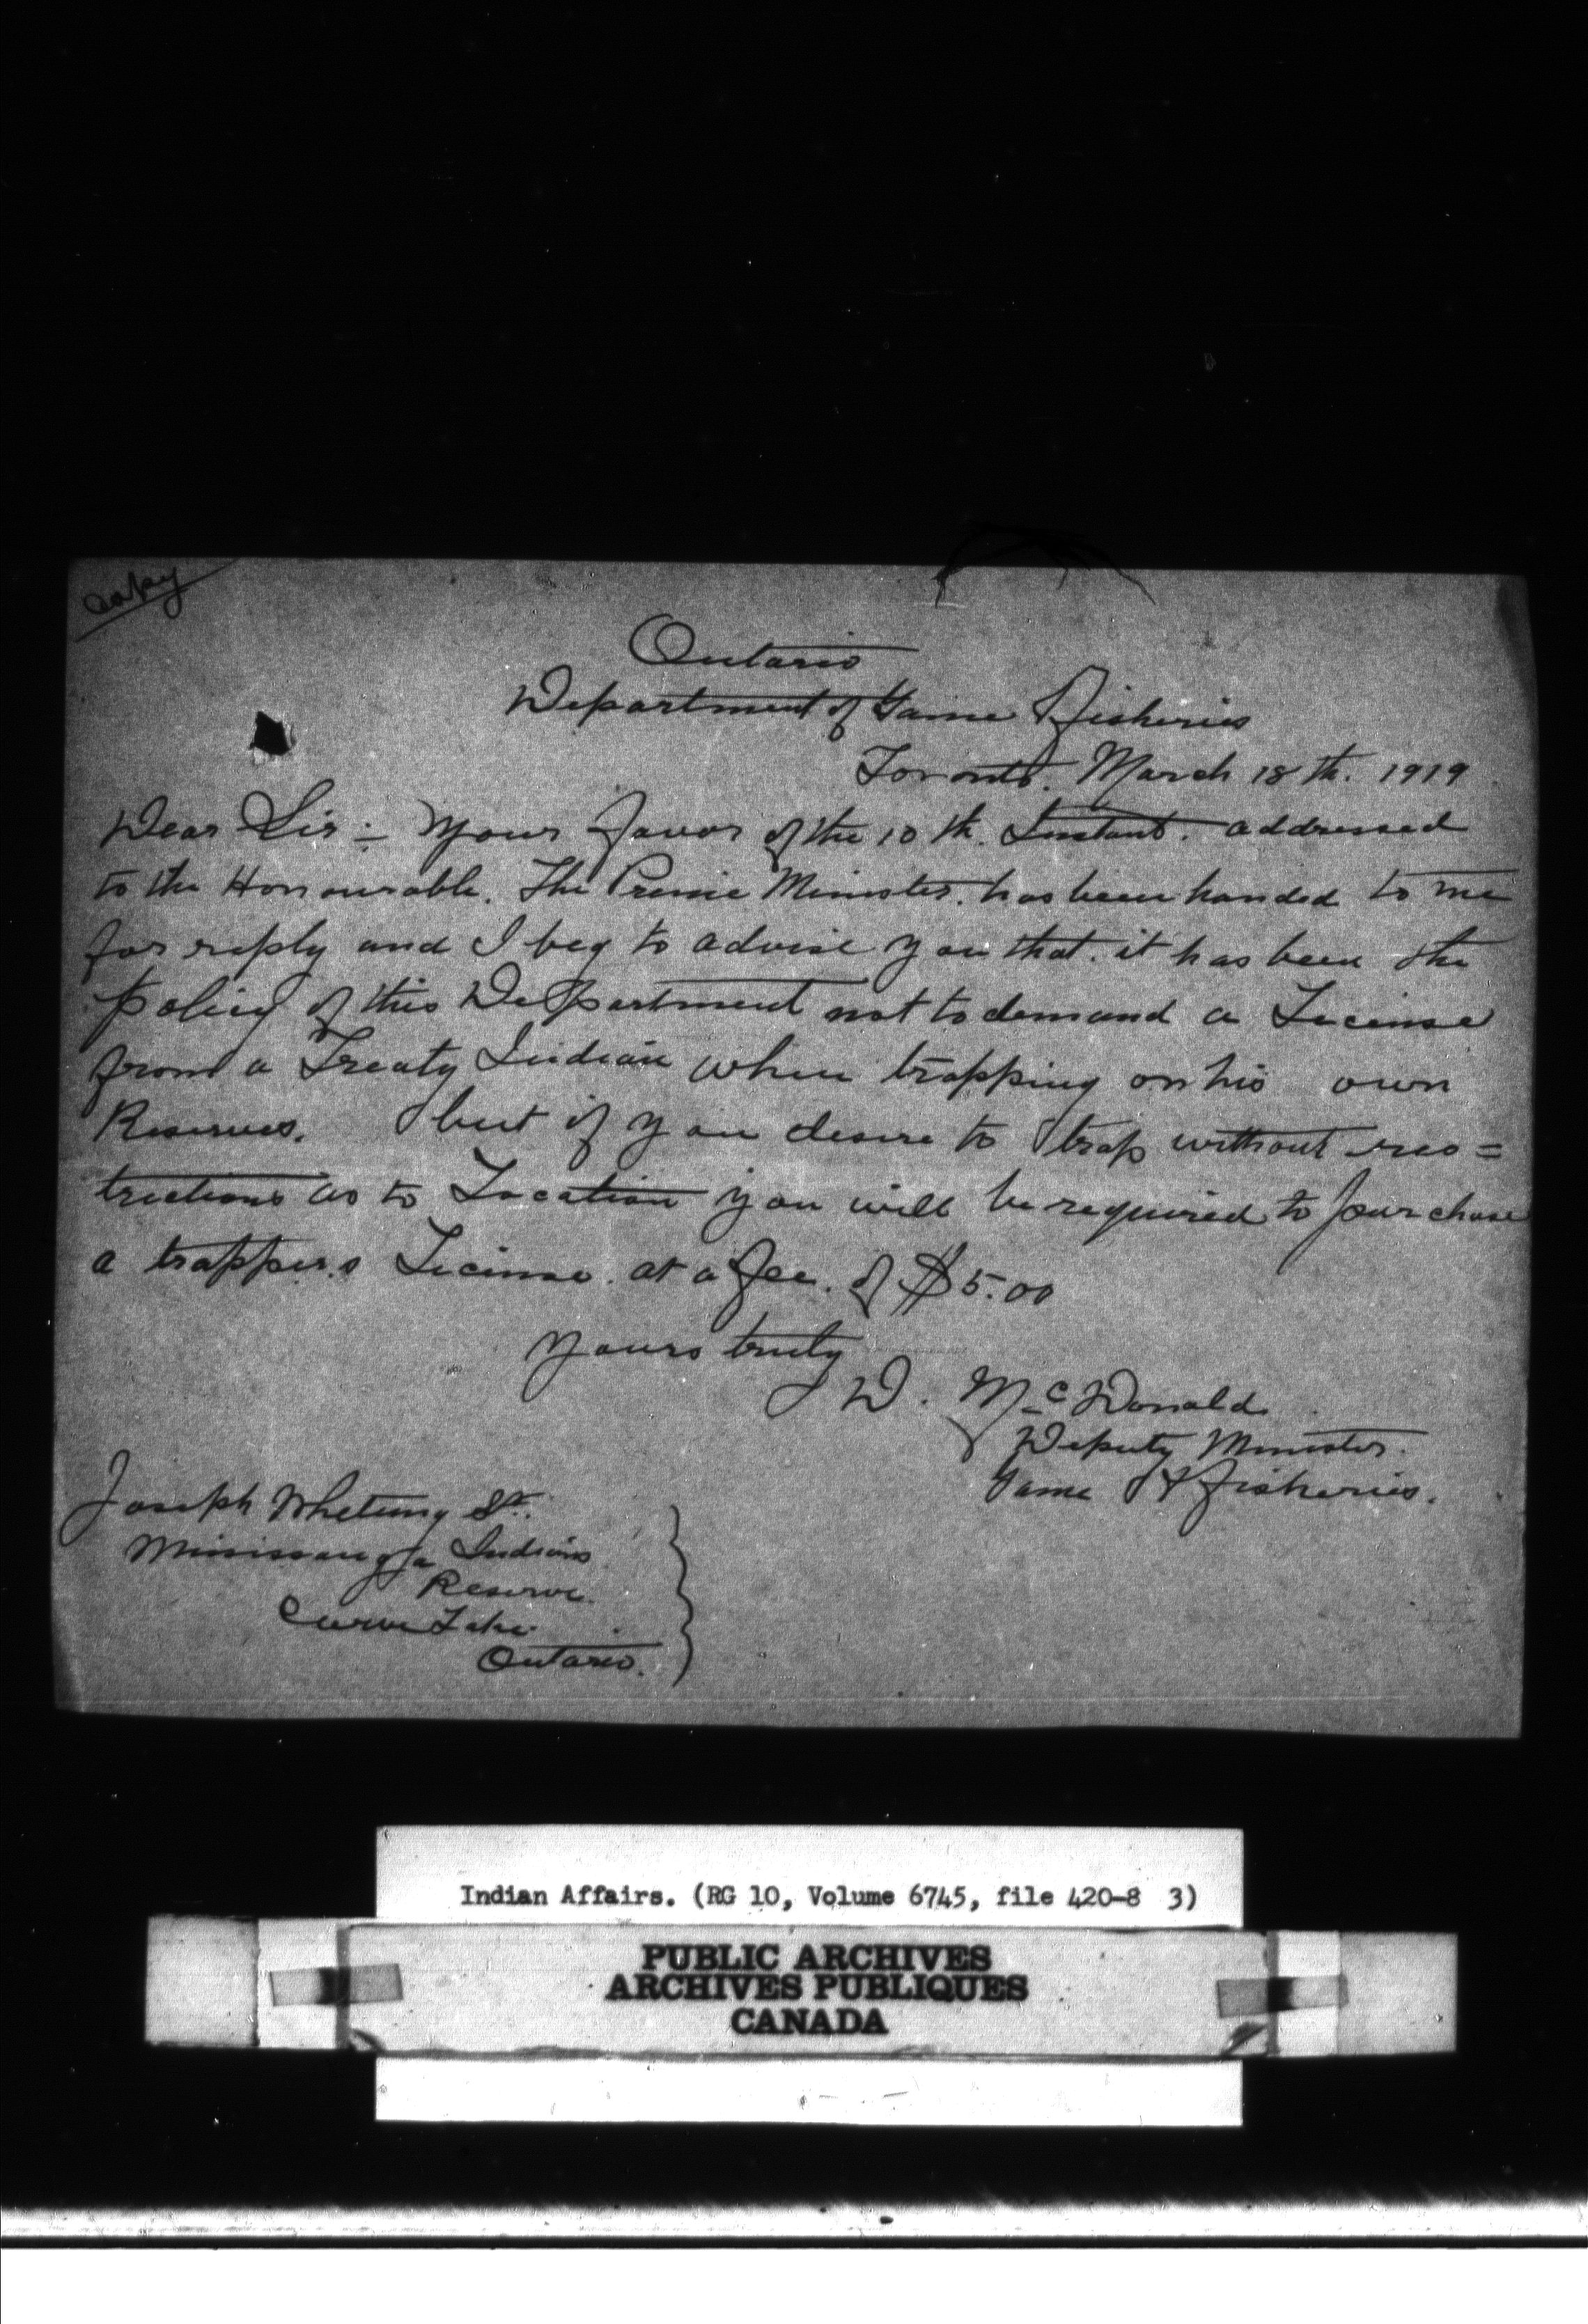 Copy
Ontario
Department of Game Fisheries
Toronto. March 18th. 1919
Dear Sir:- Your favor of the 10th. Instant. addressed
to the Honourable. The Premie Minister. has been handed to me
for reply and I beg to advise you that. it has been the
policy of this Department not to demand a License
from a Treaty Indian when trapping on his own
Reserves. but if you desire to trap without res=
trictions as to Location you will be required to purchase
a trappers License. at a fee. of $5.00
Yours truly
D. McDonald
Deputy Minister.
Game & Fisheries.
Joseph Whetung Sr.
Missisauga Indians
Reserve.
Curve Lake.
Ontario.
Indian Affairs. (RG 10, Volume 6745, file 420-8 3)
PUBLIC ARCHIVES
ARCHIVES PUBLIQUES
CANADA